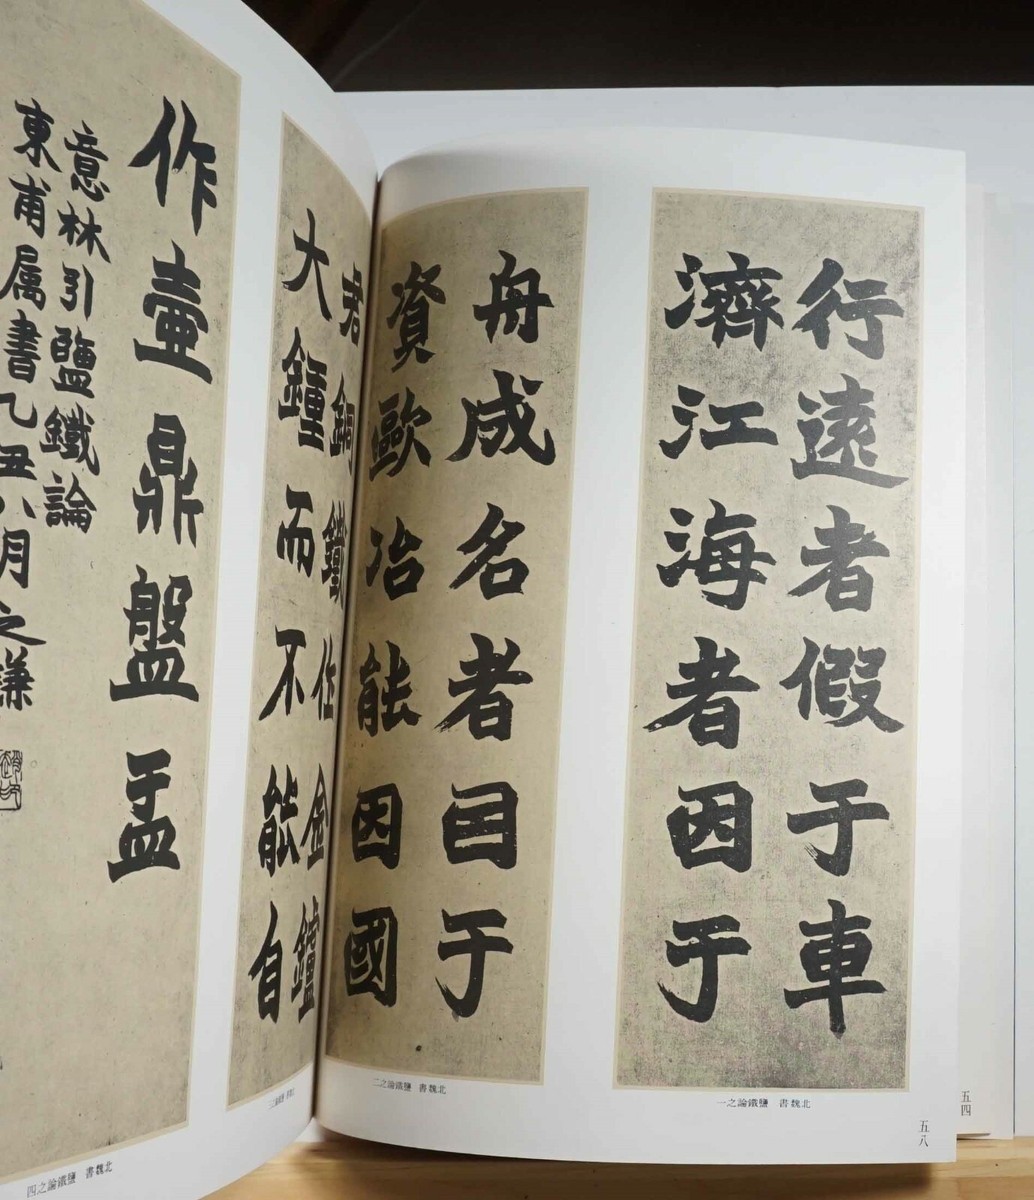 行遠者假于車
濟江海者因于
北魏書 鹽鐵論之一
舟成名者囙于
資歐冶能因國
北魏書 鹽鐵論之二
君銅鐵作金鑪
大鐘而不能自
作壷鼎盤盂
意林引鹽鐵論
東甫属書乙丑八月之謙
北魏書 鹽鐵論之四
五八
五四